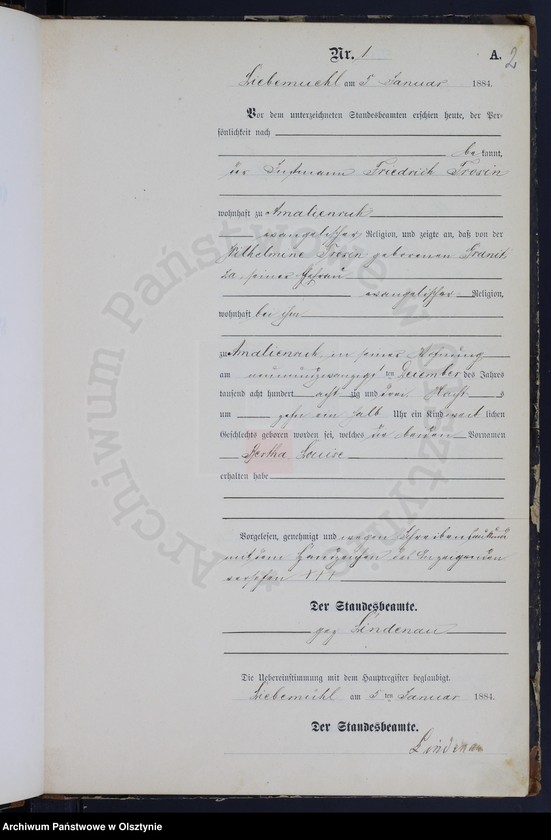 Nr. 1 A. 2
Liebemuehl am 5 Januar 1884.
Vor dem unterzeichneten Standesbeamten erschien heute, der Per-
sönlichkeit nach
be kannt,
der Instmann Friedrich Frosin
wohnhaft zu Amalienruh
evangelischer Religion, und zeigte an, daß von der
Wilhelmine Frosin geborenen
seiner Ehefrau
evangelischer Religion,
wohnhaft bei ihm
zu Amalienruh, in seiner Wohnung
am neunundzwanzigsten ten Dezember des Jahres
tausend acht hundert acht zig und drei Nachts
um zehn ein halb Uhr ein Kind weib lichen
Geschlechts geboren worden sei, welches die beiden Vornamen
Bertha Louise
erhalten habe
Vorgelesen, genehmigt und wegen Schreibensunkunde
mit dem Handzeichen des Anzeigenden
versehen +++
Der Standesbeamte.
gez Lindenau
Die Uebereinstimmung mit dem Hauptregister beglaubigt.
Liebemühl am 5 ten Januar 1884.
Der Standesbeamte.
Lindenau
Archiwum Państwowe w Olsztynie
Archiwum Państwowe w Olsztynie